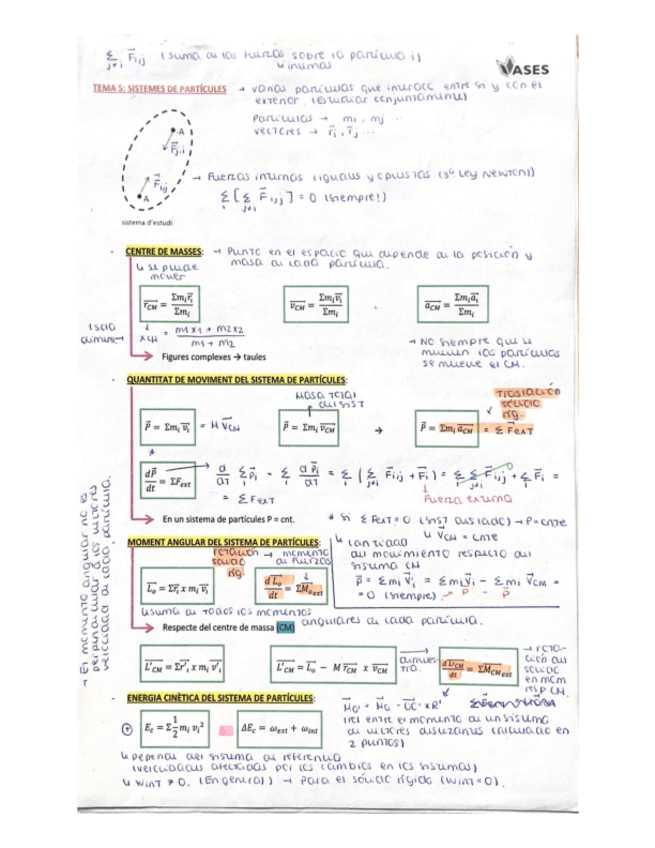 Σ j≠i F⃗i,j (suma de las fuerzas sobre la partícula i)
↳ internas
VASES
TEMA 5: SISTEMES DE PARTÍCULES → varias partículas que interacc entre sí y con el
exterior (estudiar conjuntamente)
Partículas → mi, mj ...
vectores → r⃗i, r⃗j ...
A
F⃗j,i
F⃗i,j
A
→ Fuerzas internas (iguales y opuestas (3ª Ley Newton))
Σi [Σ j≠i F⃗i,j] = 0 (siempre!)
sistema d'estudi
- CENTRE DE MASSES: → Punto en el espacio que depende de la posición y
masa de cada partícula.
↳ se puede
mover
r⃗CM = Σmi r⃗i / Σmi
v⃗CM = Σmi v⃗i / Σmi
a⃗CM = Σmi a⃗i / Σmi
1 sola
dimens→ xCM = m1x1 + m2x2 / m1 + m2
→ No siempre que se
mueven las partículas
se mueve el CM.
Figures complexes → taules
- QUANTITAT DE MOVIMENT DEL SISTEMA DE PARTÍCULES:
Masa total
del sist
Traslación
sólido
ríg.
p⃗ = Σmi v⃗i = M v⃗CM
p⃗ = Σmi v⃗CM
→
p⃗ = Σmi a⃗CM = Σ F⃗ext
dp⃗/dt = ΣFext → d/dt Σi p⃗i = Σi dp⃗i/dt = Σi (Σ j≠i F⃗i,j + F⃗i) = Σi Σ j≠i F⃗i,j + Σi F⃗i =
0
= Σ Fext
Fuerza externa
En un sistema de partículas P = cnt.
* Si Σ Fext = 0 (sist aislado) → P = cnte
↳ v⃗CM = cnte
→ El momento angular no es
perpendicular a los vectores
velocidad de cada partícula.
- MOMENT ANGULAR DEL SISTEMA DE PARTÍCULES:
rotación
sólido
ríg.
→ momento
de fuerzas
L⃗o = Σr⃗i x mi v⃗i
dL⃗o/dt = ΣM⃗o ext
↳ cantidad
del movimiento respecto del
sistema CM
p⃗ = Σmi v⃗'i = Σmi v⃗i − Σmi v⃗CM =
= 0 (siempre) → p⃗ − p⃗
↳ suma de todos los momentos
angulares de cada partícula.
Respecte del centre de massa (CM)
L⃗'CM = Σr⃗'i x mi v⃗'i
L⃗'CM = L⃗o − M r⃗CM x v⃗CM
dL⃗'CM/dt = ΣM⃗CM ext
→ rota-
ción del
sólido
en mom
resp CM.
- ENERGIA CINÈTICA DEL SISTEMA DE PARTÍCULES:
M⃗o' = M⃗o − OO⃗' x R⃗
(rel entre el momento de un sistema
de vectores deslizantes calculado en
2 puntos)
+ Ec = Σ 1/2 mi vi²
ΔEc = ωext + ωint
↳ Depende del sistema de referencia
(velocidades afectadas por los cambios en los sistemas)
↳ Wint ≠ 0. (En general) → para el sólido rígido (Wint = 0).